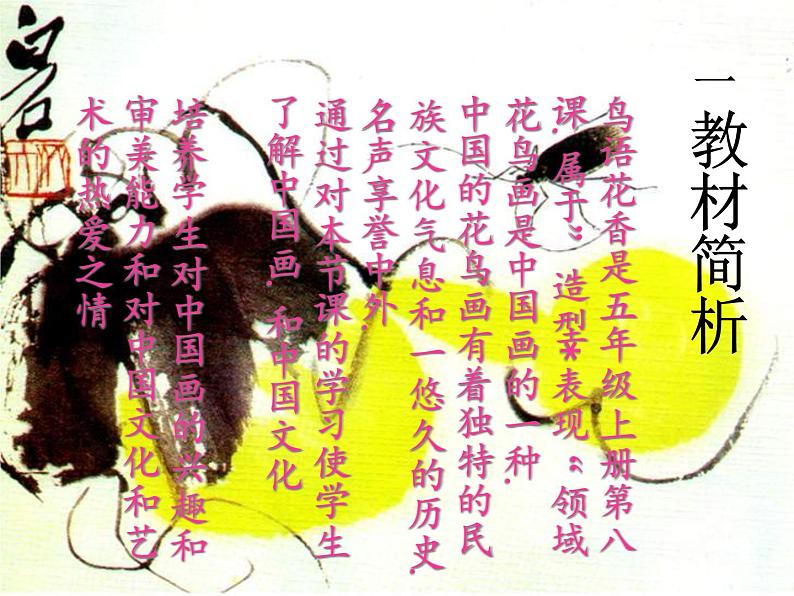 一教材简析
鸟语花香是五年级上册第八
课.属于“造型*表现“领域
花鸟画是中国画的一种.
中国的花鸟画有着独特的民
族文化气息和一悠久的历史.
名声享誉中外.
通过对本节课的学习使学生
了解中国画.和中国文化
培养学生对中国画的兴趣和
审美能力和对中国文化和艺
术的热爱之情